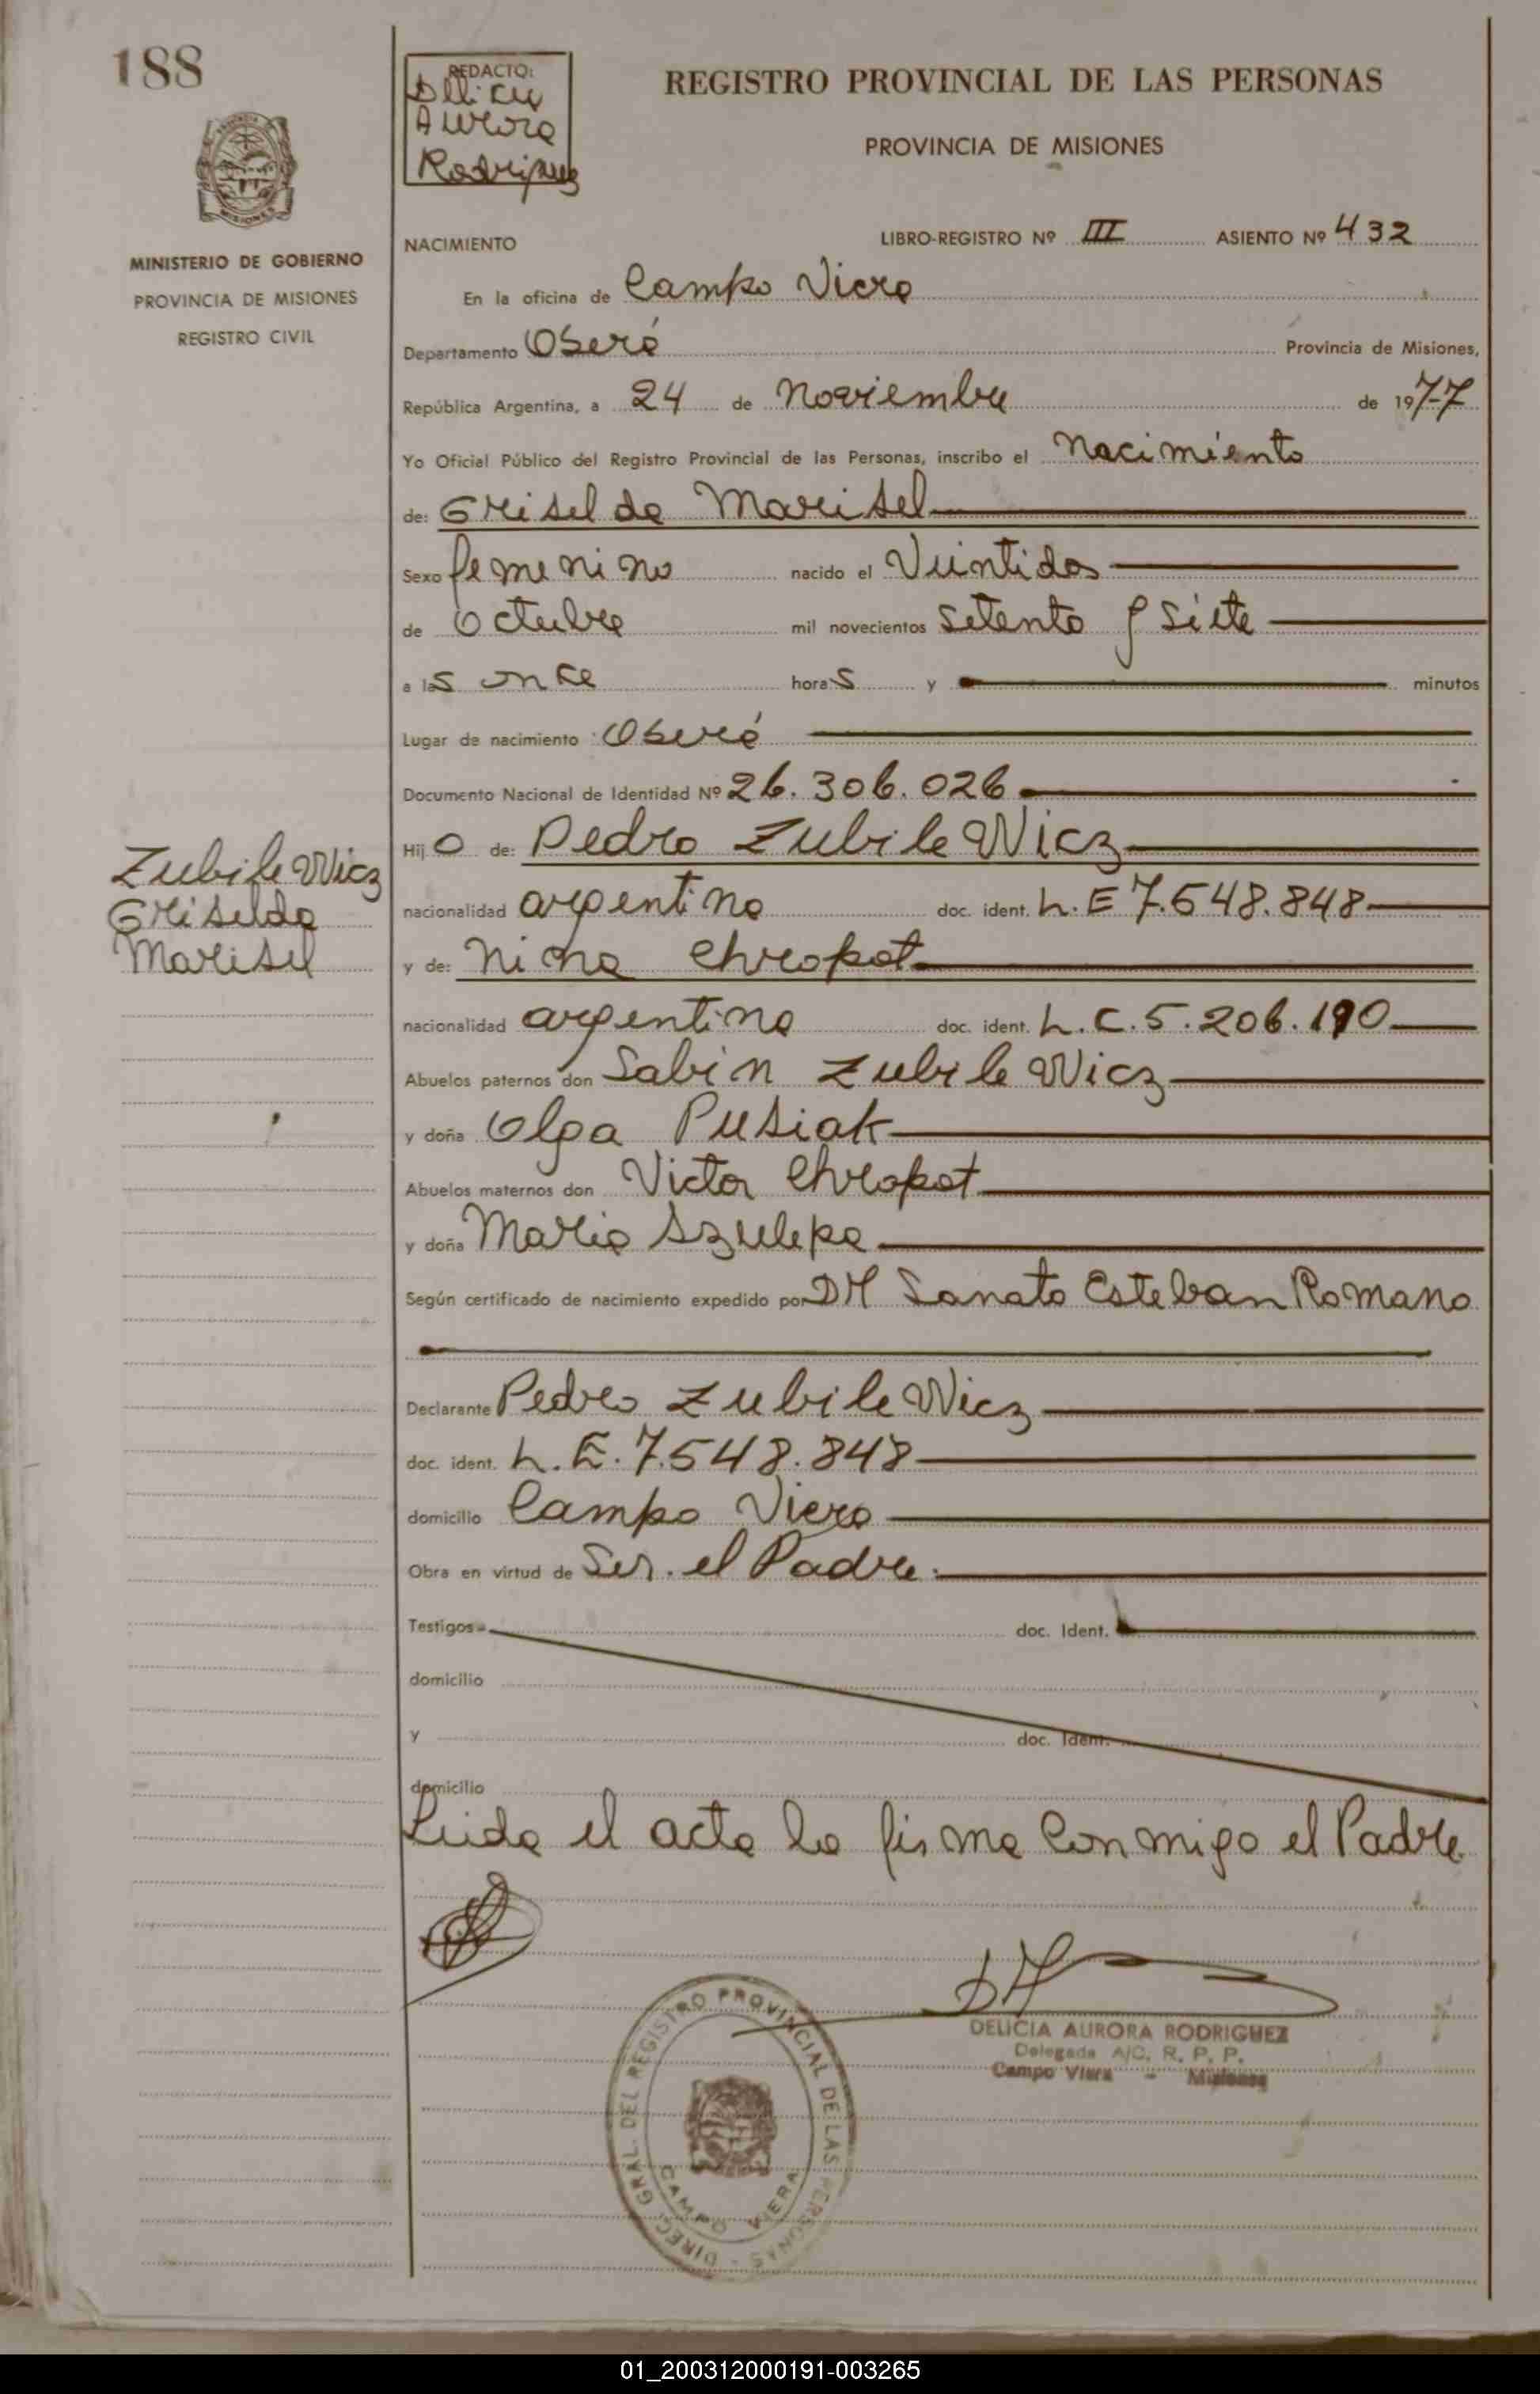 188
REDACTO:
Delicia
Aurora
Rodriguez
REGISTRO PROVINCIAL DE LAS PERSONAS
PROVINCIA DE MISIONES
MISIONES
MINISTERIO DE GOBIERNO
PROVINCIA DE MISIONES
REGISTRO CIVIL
NACIMIENTO
LIBRO-REGISTRO Nº III ASIENTO Nº 432
En la oficina de Campo Viera
Departamento Oberá Provincia de Misiones,
República Argentina, a 24 de Noviembre de 1977
Yo Oficial Público del Registro Provincial de las Personas, inscribo el Nacimiento
de: Griselda Marisel
Sexo femenino nacido el Veintidos
de Octubre mil novecientos setenta y siete
a las once horas y minutos
Lugar de nacimiento Oberá
Documento Nacional de Identidad Nº 26.306.026
Hijo de: Pedro ZubileWicz
nacionalidad argentina doc. ident. L.E 7.548.848
y de: Nina Chropot
nacionalidad argentina doc. ident. L.C. 5.206.190
Abuelos paternos don Sabin ZubileWicz
y doña Olga Pusiak
Abuelos maternos don Victor Chropot
y doña Maria Szulepa
Según certificado de nacimiento expedido por DR Sanato Esteban Romano
Declarante Pedro ZubileWicz
doc. ident. L.E. 7.548.848
domicilio Campo Viera
Obra en virtud de Ser. el Padre.
Testigos doc. Ident.
domicilio
y doc. Ident.
domicilio
Leida el acta la firma Conmigo el Padre
ZubileWicz
Griselda
Marisel
DELICIA AURORA RODRIGUEZ
Delegada A/C. R. P. P.
Campo Viera - Misiones
DIREC. GRAL. DEL REGISTRO PROVINCIAL DE LAS PERSONAS -
CAMPO VIERA
01_200312000191-003265